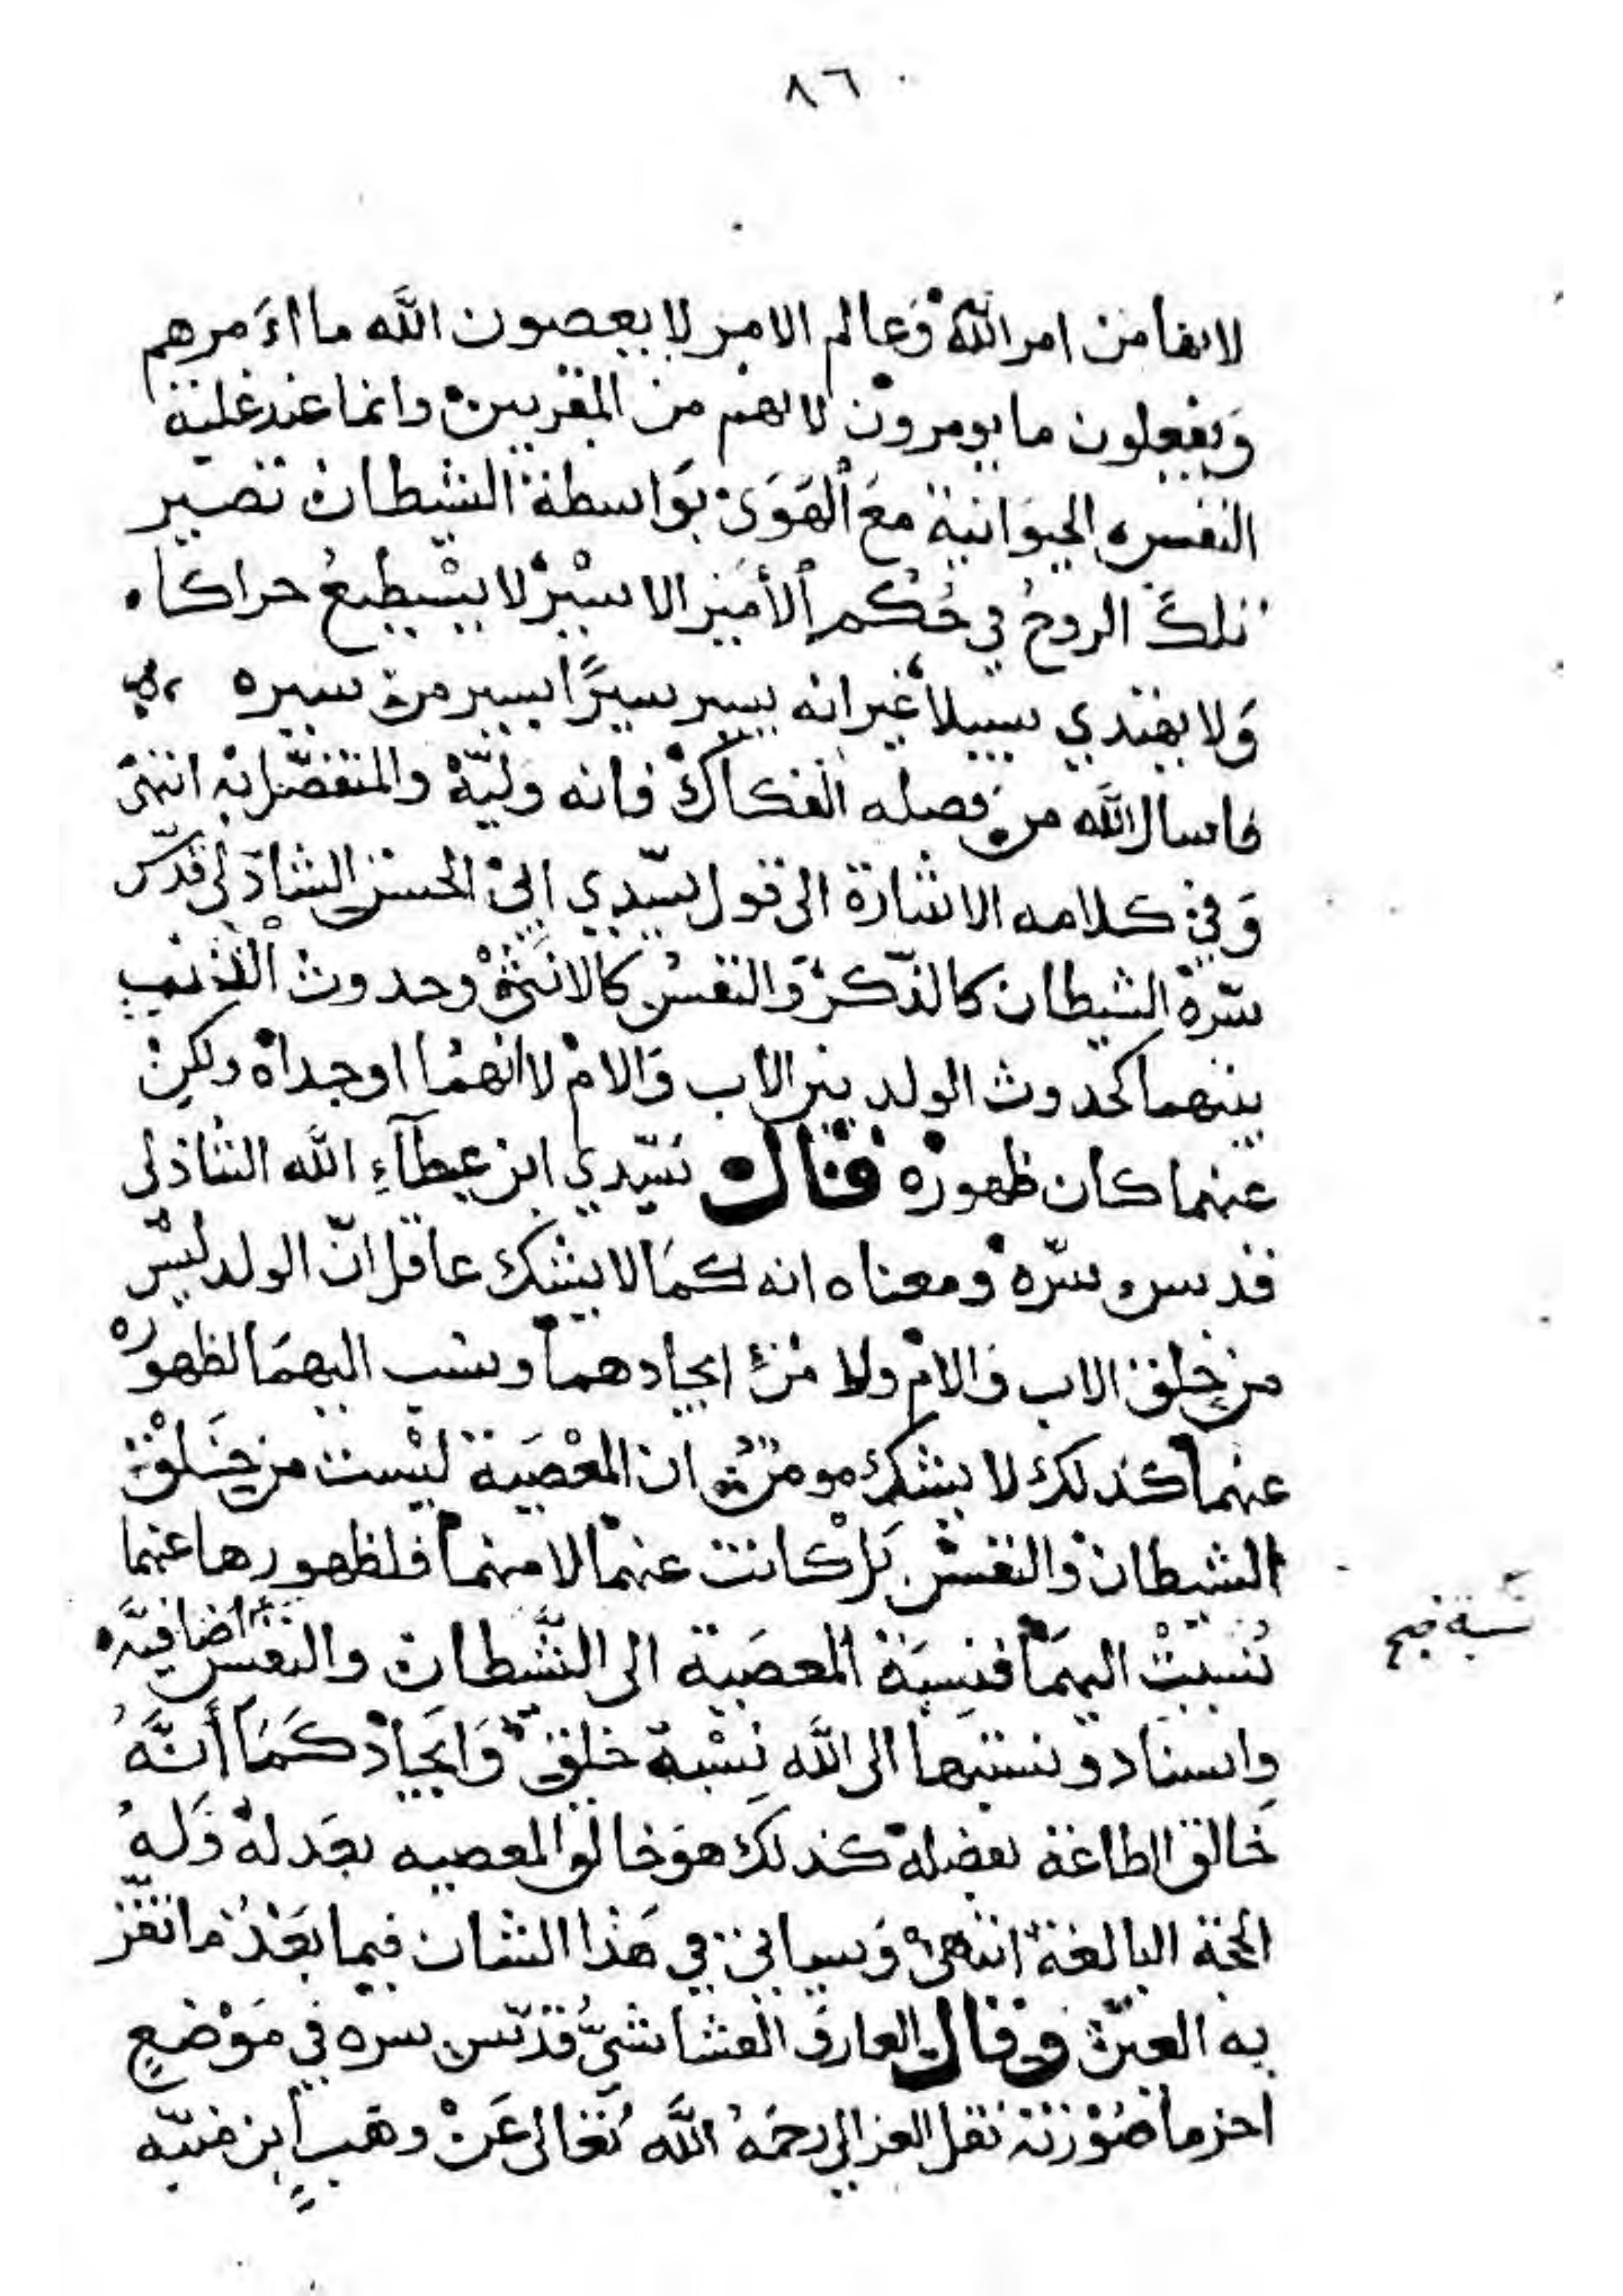 ٨٦
لانها من امر الله وعالم الامر لا يعصون الله ما اَمرهم
وَيفعلون ما يومرون لانهم من المقربين وانما عند غلبة
النفس الحيوَانية معَ الهَوَى بوَاسطة الشيطان تصير
تلكَ الروحُ في حُكم الأمير الاسيْر لا يسْتطيعُ حراكا
وَلا يهتدي سبيلا غير انه يسير سيرًا يسير من سيره
فاسال الله من فضله الفكاك فانه وَليّه والمتفضّل به انتهى
وَفي كلامه الاشارة الى قول سيّدي ابي الحسن الشاذلي قدّس
سّره الشيطان كالذّكر وَالنفسُ كالانثىْ وحدوث الذنب
بينهما كحدوث الولد بين الاب وَالام لا انهمُا اوجداه ولكن
عنهما كان ظهوره فقال سَيّدي ابن عطآءِ الله الشاذلى
قدس سّره ومعناه انه كمَا لا يشك عاقل انّ الولد ليْس
من خلق الاب وَالام ولا منْ ايجادهما ونسب اليهمَا لظهوره
عنهما كذلك لا يشك مومنٌ ان المعْصَية ليْست من خَلْق
الشيطان والنفس بَلْ كانت عنهما لا منهما فلظهورها عنهما
نُسبتْ اليهمَا فنِسبَة المعصَية الى الشَّطان والنفس اضافيَّه
نسبة صح
وِاسناد ونسبتها الى الله نِسْبة خلق وَايَجاد كَمَا أَنَّهُ
خَالق الطاعة بفضله كذلك هوَ خالق المعصيه بعَدله وَلهُ
الحجة البالغة انتهى وَسياتي في هَذا الشان فيما بَعْدُ ما تقرّ
به العين وقال العارف القشاشيُّ قدّس سره في مَوْضعٍ
اخر ما صُوْرَته نقل الغزالي رحمَهُ الله تَعَالى عَنْ وهَبٍ ابن منبّه